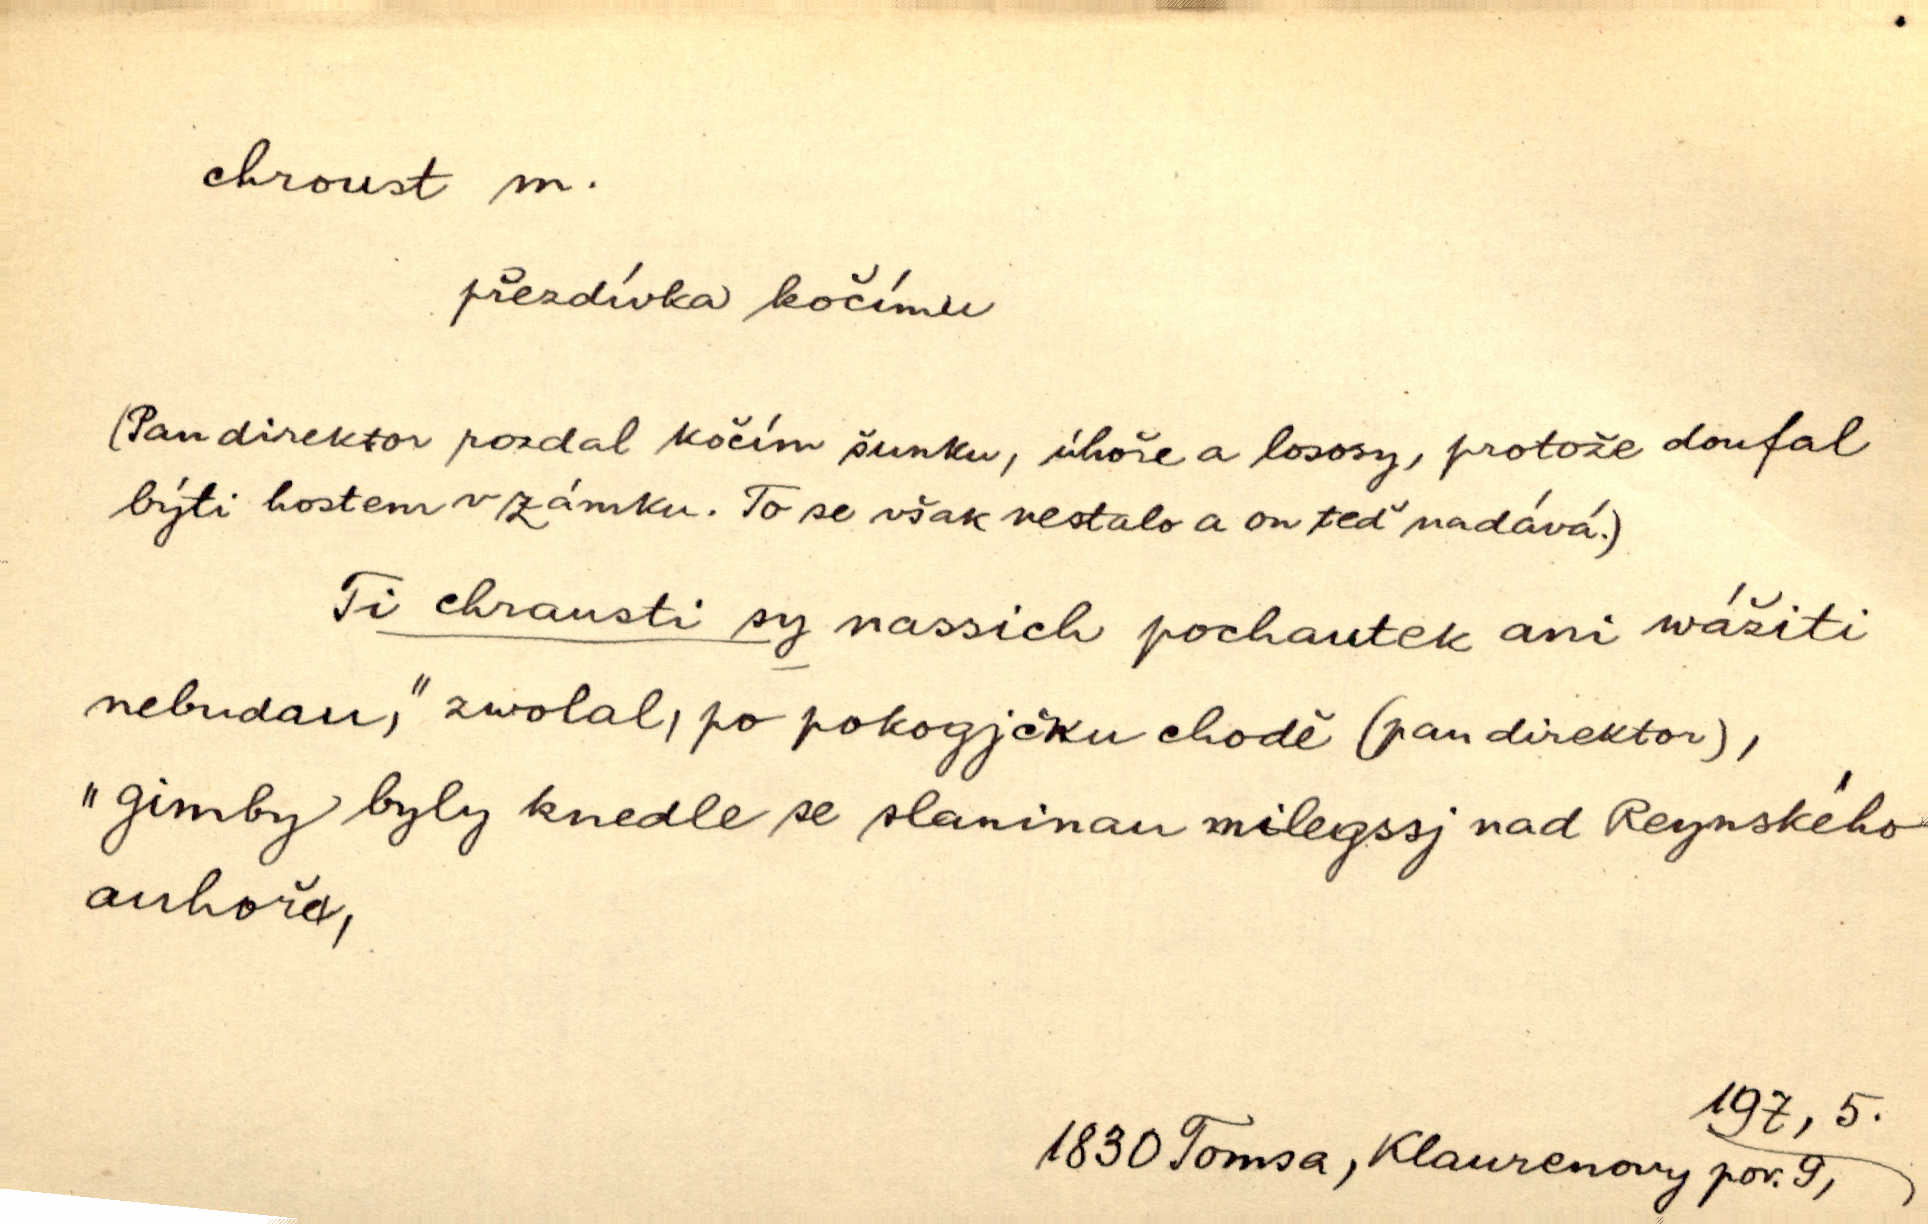 chroust m.
přezdívka kočímu
(Pan direktor rozdal kočím šunku, úhoře a lososy, protože doufal
býti hostem v zámku. To se však nestalo a on teď nadává.)
Ti chrausti sy nassich pochautek ani wážiti
nebudau," zwolal, po pokogjčku chodě (pan direktor),
"gimby byly knedle se slaninau milegssj nad Reynského
auhoře,
197, 5.
1830 Tomsa, Klaurenovy pov. 9,